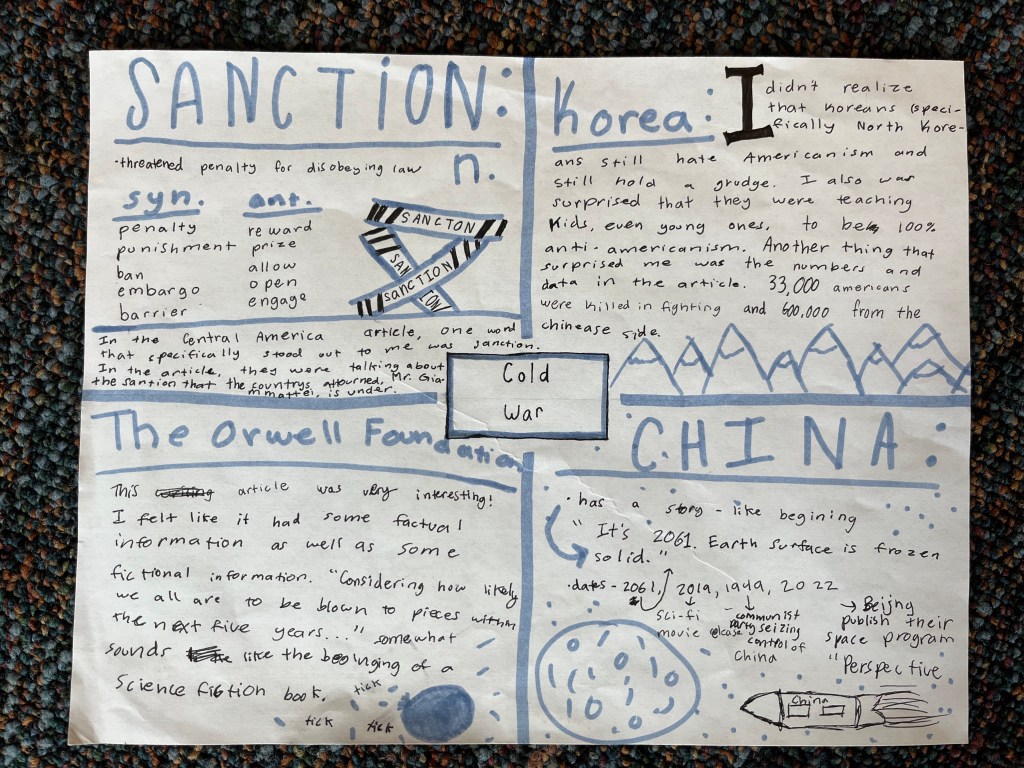 SANCTION:
n.
·threatened penalty for disobeying law
syn.
penalty
punishment
ban
embargo
barrier
ant.
reward
prize
allow
open
engage
SANCTON
SAN
TION
SANCTION
In the Central America article, one word
that specifically stood out to me, was sanction.
In the article, they were talking about
the santion that the countrys attourned, Mr. Gia-
mmattei, is under.
Korea:
I didn't realize
that Koreans (speci-
fically North Kore-
ans still hate Americanism and
still hold a grudge. I also was
surprised that they were teaching
kids, even young ones, to be 100%
anti-americanism. Another thing that
surprised me was the numbers and
data in the article. 33,000 americans
were killed in fighting and 600,000 from the
chinease side.
Cold
War
The Orwell Foundation
This article was very interesting!
I felt like it had some factual
information as well as some
fictional information. "Considering how likely
we all are to be blown to pieces within
the next five years..." somewhat
sounds like the beginging of a
Science fiction book.
tick
tick
tick
CHINA:
·has a story-like begining
"It's 2061. Earth surface is frozen
solid."
·dates - 2061, 2019, 1949, 2022
sci-fi
movie release
communist
party seizing
control of
China
→ Beijng
publish their
space program
"Perspective
China